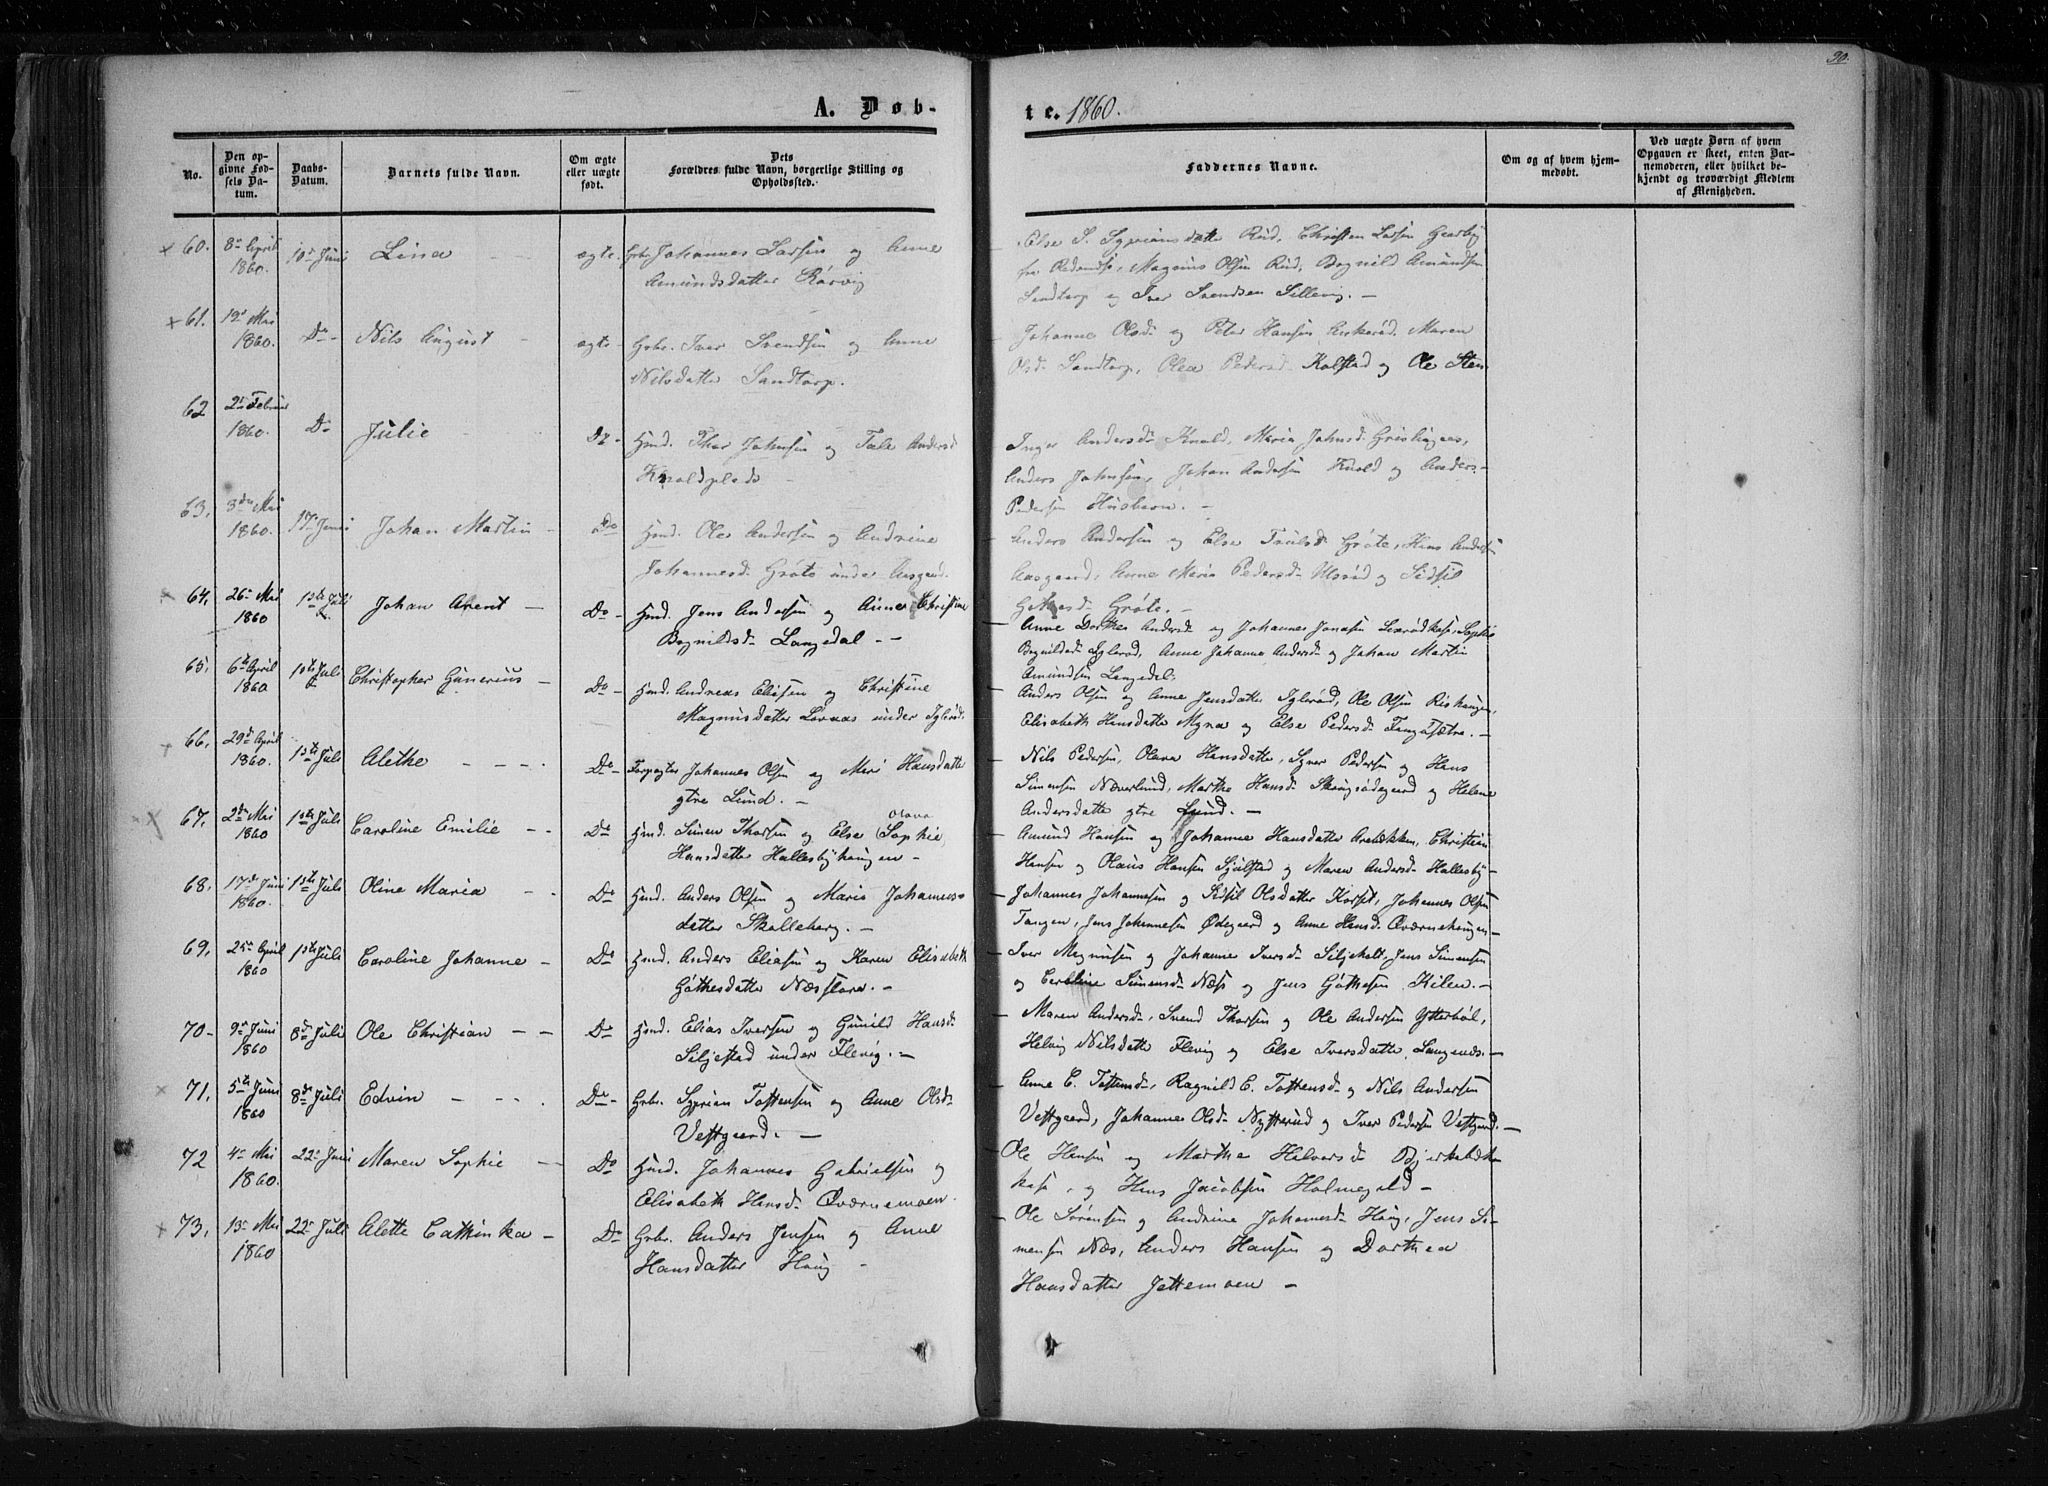 30.
A. Døb-
te. 1860.
No.
Den op-
givne Fød-
sels Da-
tum.
Daabs-
Datum.
Barnets fulde Navn.
Om ægte
eller uægte
født.
Dets
Forældres fulde Navn, borgerlige Stilling og
Opholdssted.
Faddernes Navne.
Om og af hvem hjem-
medøbt.
Ved uægte Børn af hvem
Opgaven er skeet, enten Bar-
nemoderen, eller hvilket be-
kjendt og troværdigt Medlem
af Menigheden.
× 60. 8de April 10de Juni Lina ægte. Grbr. Johannes Larsen og Anne
1860.
Amundsdatter Rørvig
Else S. Sypriansdatter Rud, Christen Larsen
Magnus Olsen Rud, Bognild Amundsen
Sandtorp og Iver Svendsen Sillevig. –
× 61. 12te Mai Do Nils August – ægte – Grbr. Iver Svendsen og Anne
1860.
Nilsdatter Sandtorp.
Johanne Olsd. og Peter Hansen Askerød, Maren
Olsd. Sandtorp, Olea Pedersd. Kolstad og Ole Sten
62 2de Februar Do Julie Do – Hmd. Thor Johnsen og Tale Andersd
1860.
Knoldplads –
Inger Andersd. Knold, Maria Johnsd.
Anders Johnsen, Johan Andersen Knold og Anders
Pedersen –
63. 3die Mai 17de Juni Johan Martin – Do Hmd. Ole Andersen og Andrine
1860.
Johannesd. Grøte under Aasgaard.
Anders Andersen og Else Trulsd. Grøte, Hans Andersen
Aasgaard, Anne Maria Pedersd. Ussrød og Sidsil
Grøte. –
64. 26de Mai 1ste Juli Johan Arent – Do – Hmd. Jens Andersen og Anne Christine
1860
Bognildsd. Langedal. –
Anne Dorthea Andersd. og Johannes Jonasen Sophie
Bognildsd. Iglerød, Anne Johanne Andersd. og Johan Martin
Amundsen Langedal.
65. 6te April 1ste Juli Christopher Gunerius – Do – Hmd. Andreas Eliesen og Christine
1860
Magnusdatter Lornas under Iglerød.
Anders Olsen og Anne Jensdatter Iglerød, Ole Olsen Rishaugen,
Elisabeth Hansdatter Myra og Else Pedersd. Tangesætre. –
× 66. 29de April 1ste Juli Alethe – – – Do – Forpagter Johannes Olsen og Mari Hansdatter
1860.
ytre Lund. –
Nils Pedersen, Olava Hansdatter, Syver Pedersen og Hans
Simensen Næverlund, Marthe Hansd. Skougsødegaard og Helene
Andersdatter ytre Lund. –
× 67. 2den Mai 1ste Juli Caroline Emilie – Do Hmd. Simen Thorsen og Else Sophie
Olava
1860
Hansdatter Hallesbyhaugen –
Amund Hansen og Johanne Hansdatter Arebekken, Christian
Hansen og Olaus Hansen Sjulstad og Maren Andersd. Hallesby
68. 17de Juni 1ste Juli Oline Maria – Do Hmd. Anders Olsen og Marie Johannes-
1860.
datter Skalleberg. –
Johannes Johannesen og Sidsil Olsdatter Korset, Johannes Olsen
Tangen, Jens Johannesen Ødegaard og Anne Hansd. Qværnehaugen –
69. 25de April 1ste Juli Caroline Johanne – Do Hmd. Anders Eliasen og Karen Elisabeth
1860
Gøthesdatter Næsstora. –
Iver Magnusen og Johanne Iversd. Siljeholt, Jens Simensen
og Caroline Simensd. Næss og Jens Gøthesen Kilen. –
70 – 9de Juni 8de Juli Ole Christian – – Do Hmd. Elias Iversen og Gunild Hansd.
1860
Siljestad under Flevig. –
Maren Andersd., Svend Thorsen og Ole Andersen Ytterbøl,
Helvig Nilsdatter Flevig og Else Iversdatter Langenæs. –
× 71. 5te Juni 8de Juli Edvin – – – Do – Grbr. Syprian Tostensen og Anne Olsd.
1860
Vestgaard. –
Anne C. Tostensd., Ragnild C. Tostensd. og Nils Andersen
Vestgaard, Johanne Olsd. Nytterud og Iver Pedersen Vestgaard. –
72 4de Mai 22de Juni Maren Sophie – Do Hmd. Johannes Gabrielsen og
1860.
Elisabeth Hansd. Qværnemoen.
Ole Hansen og Marthe Halvorsd.
og Hans Jacobsen Holmegild –
× 73. 13de Mai 22de Juli Alette Cathinka – Do Grbr. Anders Jensen og Anne
1860
Hansdatter Haug –
Ole Sørensen og Andrine Johannesd. Haug, Jens Si-
mensen Næs, Anders Hansen og Dorthea
Hansdatter Jettemoen –